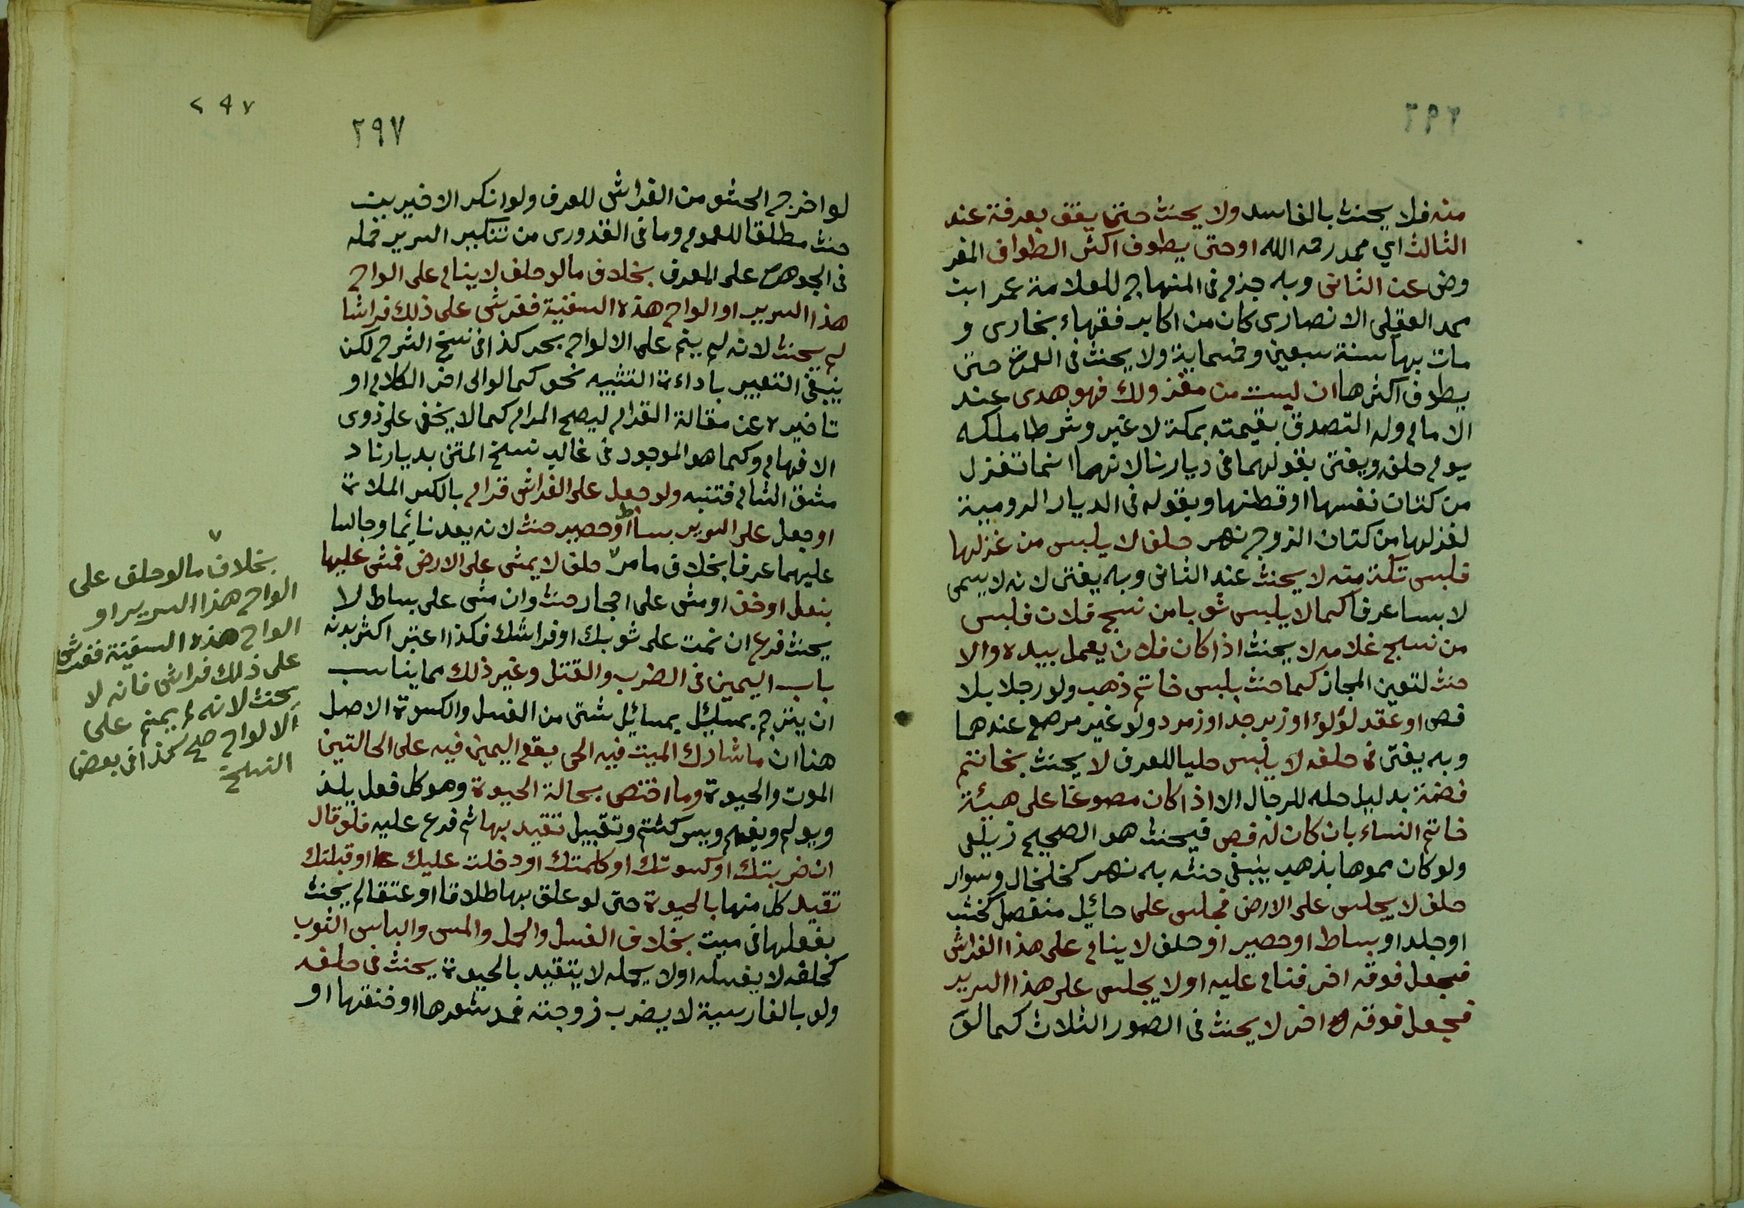 ٢٩٦
منه فلا يحنث بالفاسد ولا يحنث حتى يقف بعرفة عند
الثالث اي محمد رحمه الله او حتى يطوف اكثر الطواف المفر
وض عن الثاني وبه جزم في المنهاج للعلامة عمر ابن
محمد العقلي الانصاري كان من اكابر فقهاء بخارى و
مات بها سنة سبعين وخمسماية ولا يحنث في العمرة حتى
يطوف اكثرها ان لبست من مغزولك فهو هدى عند
الامام وله التصدق بقيمته بمكة لا غير وشرطا ملكه
يوم حلف ويفتى بقولهما في ديارنا لانهما انما تغزل
من كتان نفسها او قطنها وبقوله في الديار الرومية
لغزلها من كتان الزوج نهر حلف لا يلبس من غزلها
فلبس تكة منه لا يحنث عند الثاني وبه يفتى لانه لا يسمى
لابسا عرفا كما لا يلبس ثوبا من نسج فلان فلبس
من نسج غلامه لا يحنث اذا كان فلان يعمل بيده والا
حنث لتعين المجاز كما حنث بلبس خاتم ذهب ولو رجلا بلا
فص او عقد لؤلؤ او زبرجد او زمرد ولو غير مرصع عندهما
وبه يفتى في حلفه لا يلبس حليا للعرف لا يحنث بخاتم
فضة بدليل حله للرجال الا اذا كان مصوغا على هيئة
خاتم النساء بان كان له فص فيحنث هو الصحيح زيلعي
ولو كان مموها بذهب ينبغي حنثه به نهر كخلخال وسوار
حلف لا يجلس على الارض فجلس على حائل منفصل كخشب
او جلد او بساط او حصير او حلف لا ينام على هذا الفراش
فجعل فوقه اخر فنام عليه او لا يجلس على هذا السرير
فجعل فوقه اخر لا يحنث في الصور الثلاث كما لو
٢٩٧
٢٩٧
لو اخرج الحشو من الفراش للعرف ولو انكر الاخيرين
حنث مطلقا للعموم وما في القدوري من تنكير السرير حمله
في الجوهرة على المعرف بخلاف ما لو حلف لا ينام على الواح
هذا السرير او الواح هذه السفينة ففرش على ذلك فراشا
لم يحنث لانه لم ينم على الالواح بحر كذا في نسخ الشرح لكن
ينبغي التعبير باداة التشبيه نحو كما لو الى اخر الكلام او
تاخيره عن مقالة القرام ليصح المرام كما لا يخفى على ذوى
الافهام وكما هو الموجود في غالب نسخ المتن بديارنا د
مشق الشام فتنبه ولو جعل على الفراش قرام بالكسر الملاءة
او جعل على السرير بساط او حصير حنث لانه يعد نائما وجالسا
عليهما عرفا بخلاف ما مر حلف لا يمشى على الارض فمشى عليها
بنعل او خف او مشى على احجار حنث وان مشى على بساط لا
يحنث فرع ان نمت على ثوبك او فراشك فكذا اعتبر اكثر بدنه
باب اليمين في الضرب والقتل وغير ذلك مما يناسب
ان يترجم بمسائل بمسائل شتى من الغسل والكسوة الاصل
هنا ان ما شارك الميت فيه الحى يقع اليمين فيه على الحالتين
الموت والحيوة وما اختص بحالة الحيوة وهو كل فعل يلذ
ويولم ويغم ويسر كشتم وتقبيل تقيد بها ثم فرع عليه فلو قال
ان ضربتك او كسوتك او كلمتك او دخلت عليك او قبلتك
تقيد كل منها بالحيوة حتى لو علق بها طلاقا او عتقا لم يحنث
بفعلها في ميت بخلاف الغسل والحمل والمس والباس الثوب
كحلفه لا يغسله او لا يحمله لا يتقيد بالحيوة يحنث في حلفه
ولو بالفارسية لا يضرب زوجته فمد شعرها او خنقها او
بخلاف ما لو حلف على
الواح هذا السرير او
الواح هذه السفينة ففرش
على ذلك فراش فانه لا
يحنث لانه لم ينم على
الالواح صح كذا في بعض
النسخ